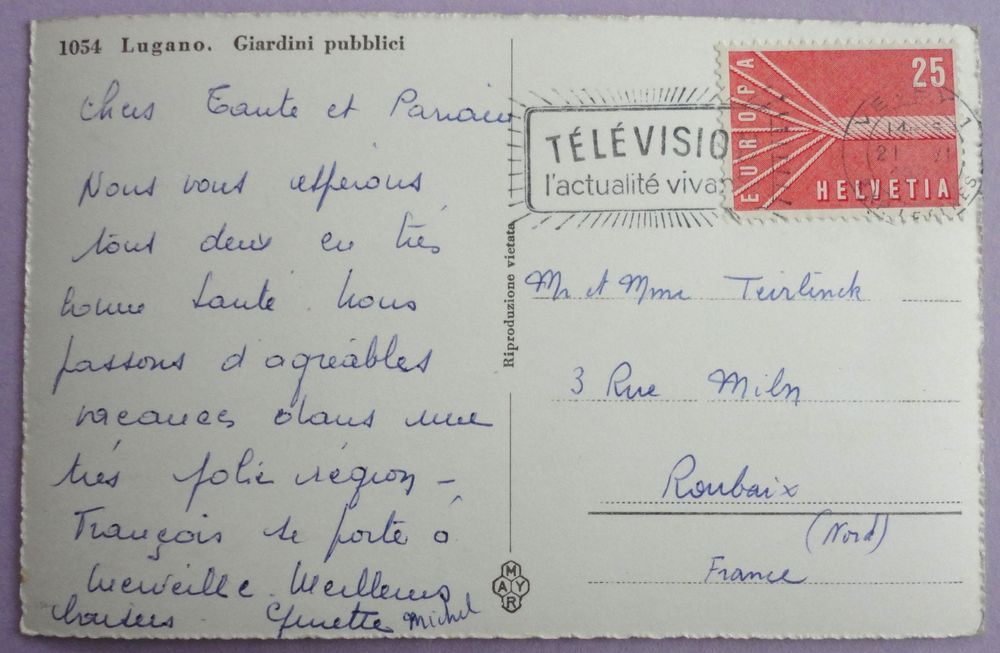 1054 Lugano. Giardini pubblici
Chers Tante et Parrain
Nous vous espérons
tous deux en très
bonne santé Nous
passons d'agréables
vacances dans une
très jolie région –
François se porte à
merveille. Meilleurs
baisers Ginette Michel
Riproduzione vietata
MAYR
TÉLÉVISIO
l'actualité vivan
EUROPA
25
HELVETIA
14
21 VI
Mr et Mme Teirlinck
3 Rue Miln
Roubaix
(Nord)
France